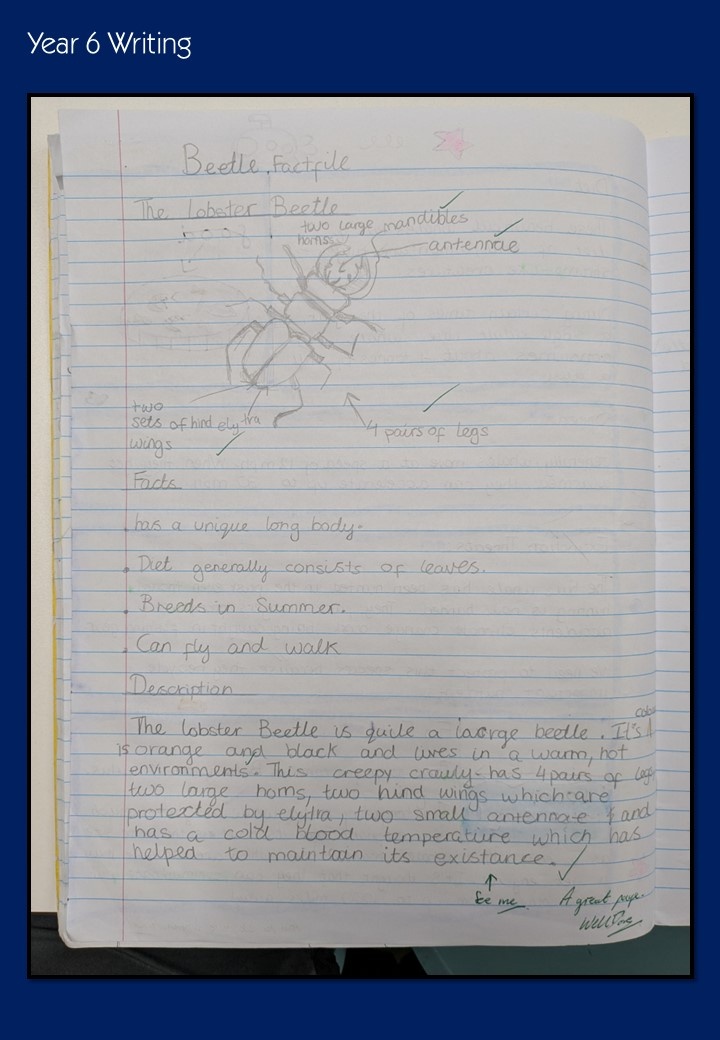 Year 6 Writing
Beetle Factfile
The lobster Beetle
two large mandibles
horns
antennae
two
sets of hind elytra
wings
4 pairs of legs
Facts
has a unique long body.
. Diet generally consists of leaves.
. Breeds in Summer.
. Can fly and walk
Description
The lobster Beetle is quile a large beetle. It's
is orange and black and lives in a warm, hot
environments. This creepy crawly has 4 pairs of legs
two large horns, two hind wings which are
protected by elytra, two small antennae and
has a cold blood temperature which has
helped to maintain its existance.
See me
A great page
Well Done